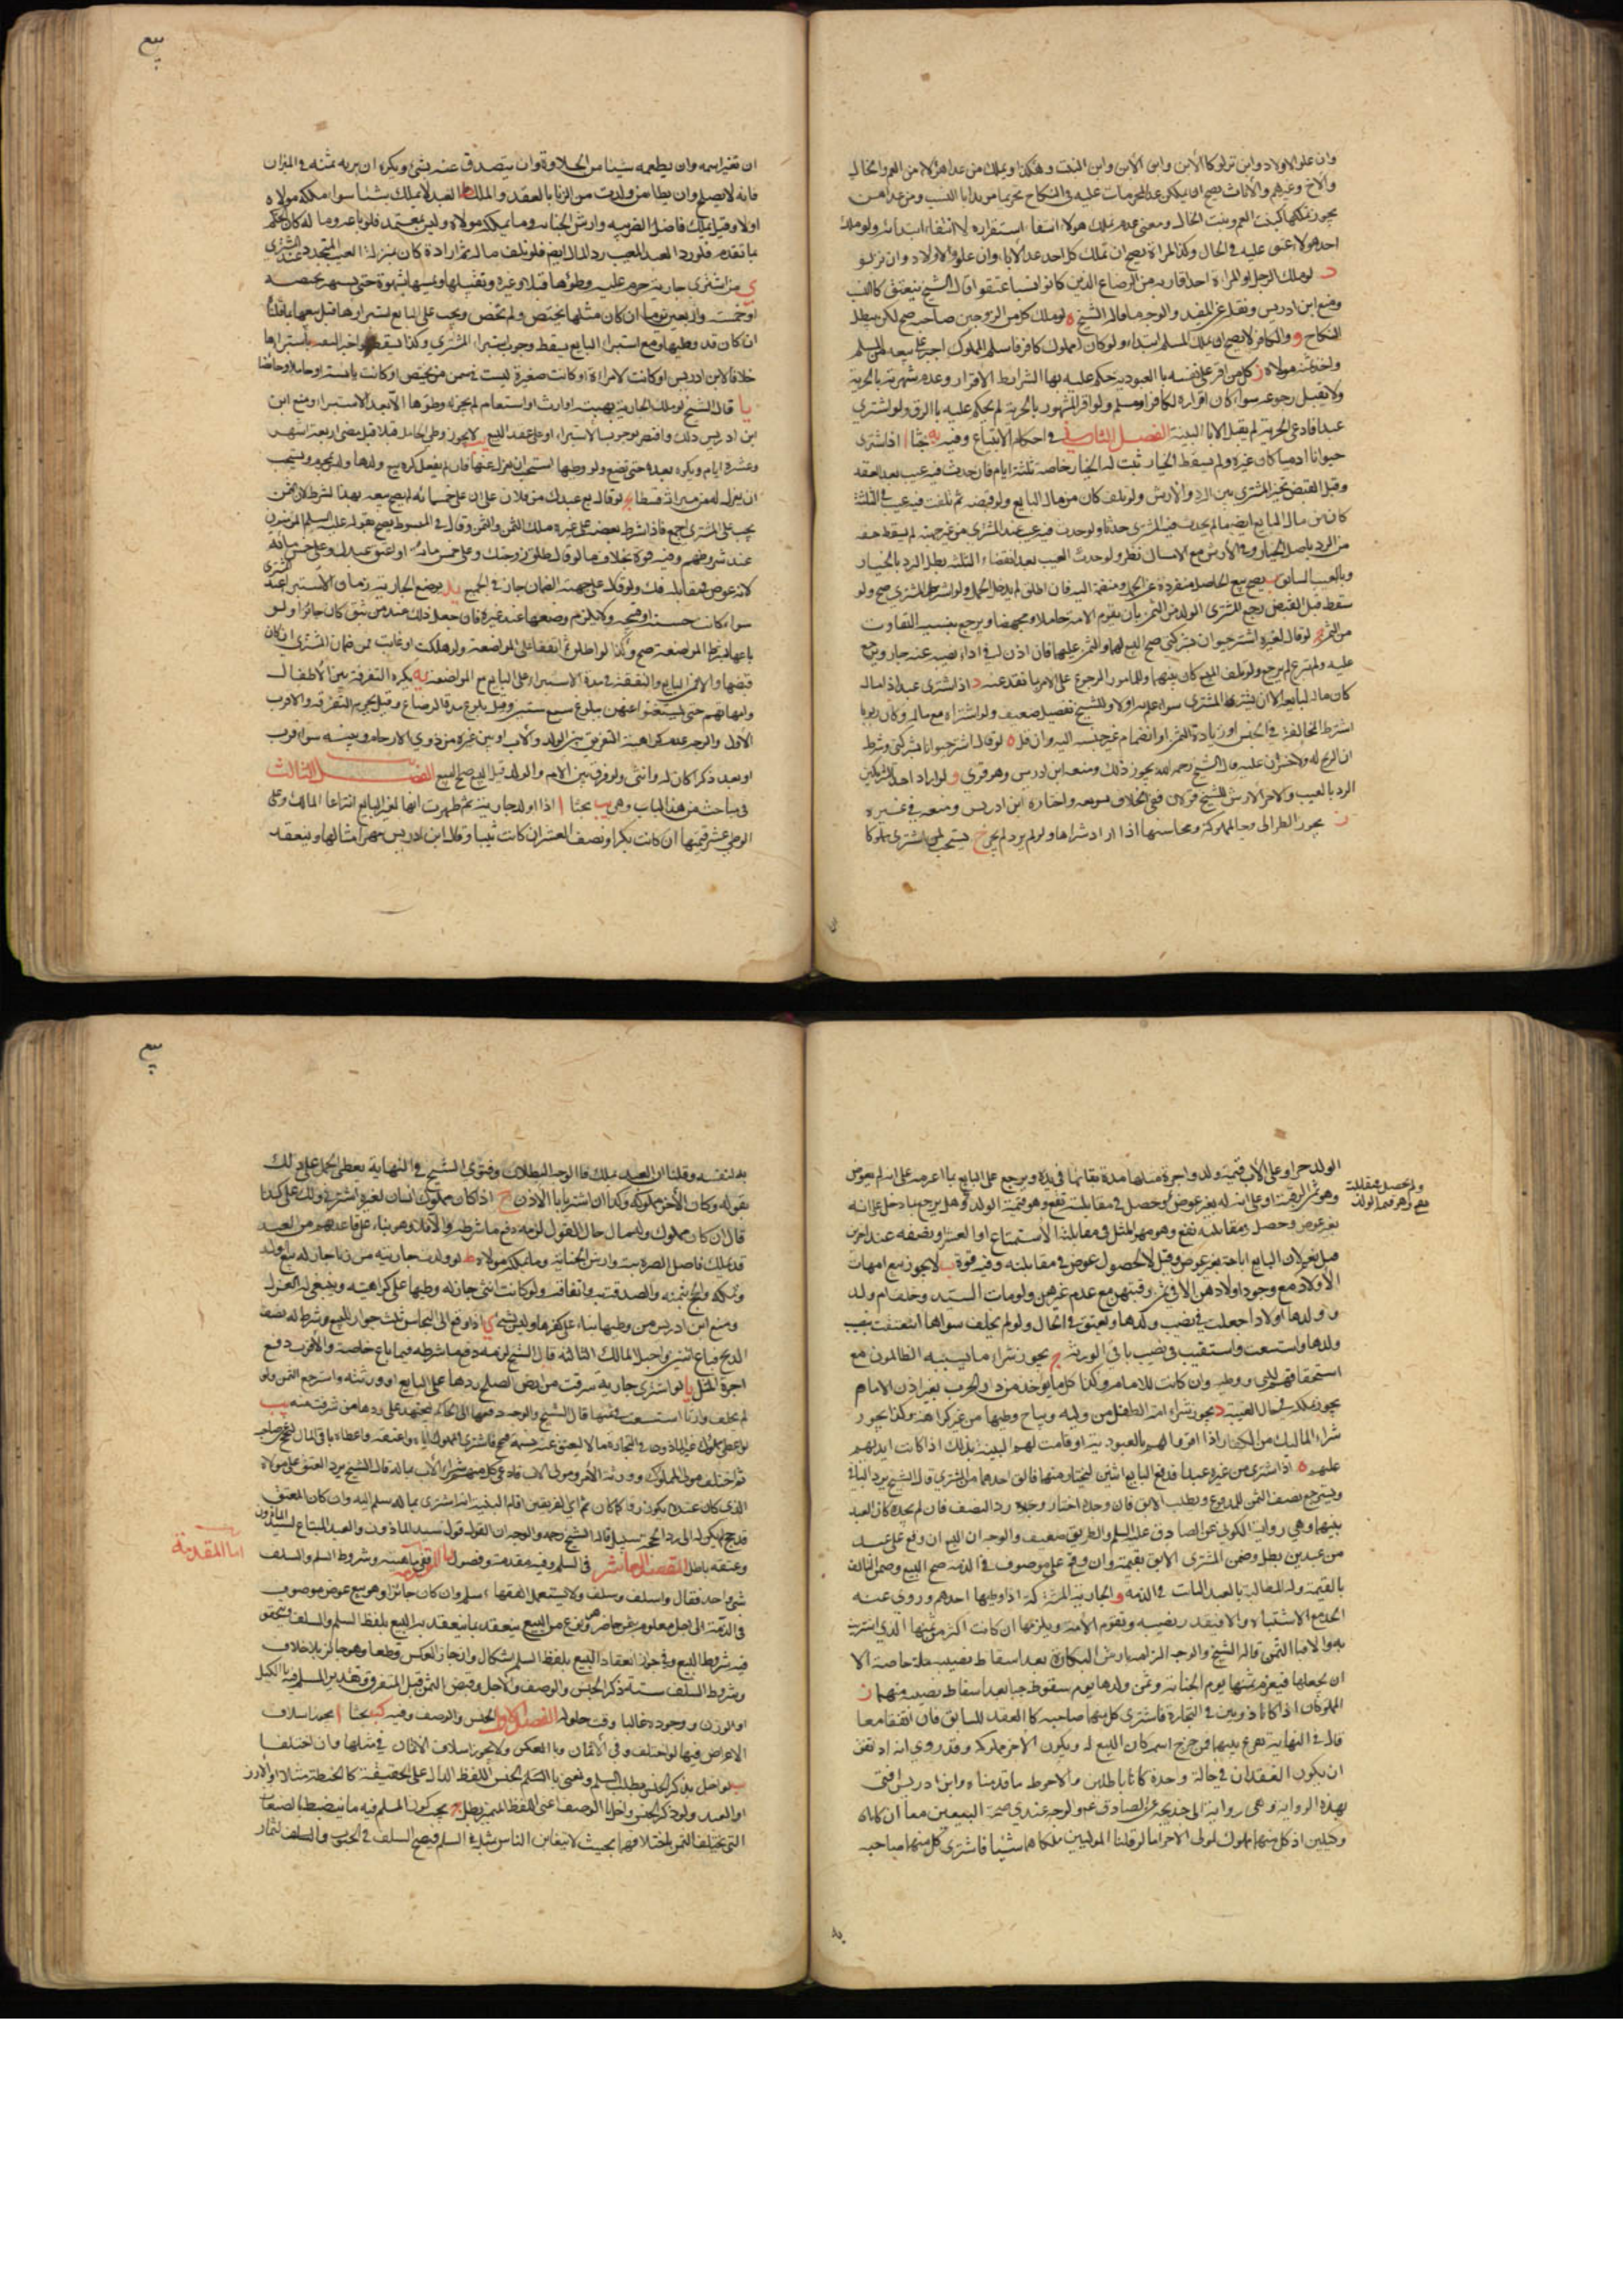 وان علو الاولاد وابن تزلوكا الأبن وابن الأبن وابن البنت وهكذا ويملك من عدا هؤلاء من العم والخال
والأخ وغيرهم والأناث يصح ان يملكن عدا المحرمات عليه في النكاح تحريما موبدا بالنسب ومن عداهن
يجوز تملكها كبنت العم وبنت الخال ومعنى عدم ملك هؤلاء انتفاء استقراره لا انتفاء ابتدائه ولو ملك
احد هولاء عتق عليه في الحال وكذا المراة يصح ان تملك كل احد عدا الأباء وان علوا والأولاد وان نزلوا
د لو ملك الرجل او المراة احد اقاربه من الرضاع الذين كانوا نسبا عتقوا قال الشيخ ينعتق كالنسب
ومنع ابن ادريس ونقله عن المفيد والوجه ما قاله الشيخ ه لو ملك كل من الزوجين صاحبه صح لكن يبطل
النكاح و والكافر لا يصح ان يملك المسلم ابتداء ولو كان المملوك كافر فاسلم المملوك اجبر على بيعه من المسلم
واخذ ثمنه مولاه ز كل من اقر على نفسه با العبودية حكم عليه بها الشرايط الاقرار وعدم شهرته بالحرية
ولا يقبل رجوعه سواء كان اقراره لكافر او مسلم ولو اقر المشهور بالحرية لم يحكم عليه با الرق ولو اشترى
عبدا فادعى الحرية لم يقبل الا با البينة الفصل الثاني في احكام الابتياع وفيه يه بحثا ا اذا اشترى
حيوانا ادميا كان غيره ولم يسقط الخيار ثبت له الخيار خاصة ثلثة ايام فان حدث فيه عيب بعد العقد
وقبل القبض تخير المشتري بين الرد والأرش ولو تلف كان من مال البايع ولو قبضه ثم تلفت فيه عيب في الثلثة
كان من مال البايع ايضا ما لم يحدث فيه المشترى حدثا ولو حدث فيه عيب عند المشترى من غير جهته لم يسقط حقه
من الرد باصل الخيار وفي الأرش مع الامساك نظر ولو حدث العيب بعد انقضاء الثلثة بطل الرد بالخيار
وبالعيب السابق ب يصح بيع الحامل منفردة عن الحمل ومنضمة اليه فان اطلق لم يدخل الحمل ولو اشترطه المشتري صح ولو
سقط قبل القبض رجع المشترى الولد من الثمن بأن يقوم الامة حاملا ومجهضا ويرجع بنسبة التفاوت
من الثمن ج لو قال لغيره اشتر حيوان بشركتي صح البيع لهما والثمن عليهما فان اذن له في اداء نصيبه عنه جاز ويرجع
عليه ولو تبرع لم يرجع ولو تلف المبيع كان بينهما وللمامور الرجوع على الامر بما نقد عنه د اذا اشترى عبدا له مال
كان ماله لبايعه الا ان يشترطه المشترى سواء علم به او لا وللشيخ تفصيل ضعيف ولو اشتراه مع ماله وكان ربويا
اشترط المخالفة في الجنس او زيادة الثمن او انضمام غير جنسه اليه وان قل ه لو قال اشتر حيوانا بشركتي وشرط
ان الربح له ولا خسران عليه قال الشيخ رحمه الله يجوز ذلك ومنعه ابن ادريس وهو قوي و لو اراد احد الشريكين
الرد بالعيب والاخر الأرش للشيخ قولان ففي الخلاف يسوغه واختاره ابن ادريس ومنعه في غيره
ز يجوز النظر الى وجه المملوكة ومحاسنها اذا اراد شراها ولو لم يرد لم يجز ح يستحب لمن اشترى مملوكا
بيع
ان تغير اسمه وان يطعمه شيئا من الحلاوة وان يتصدق عنه بشيء ويكره ان يريه ثمنه في الميزان
فانه لا يصلح وان يطا من ولدت من الزنا بالعقد والملك ط العبد لا يملك شيئا سواء ملكه مولاه
اولا وقيل يملك فاضل الضريبة وارش الجناية وما يملكه مولاه وليس بمعتمد فلو باعه وما له كان الحكم
ما تقدم فلو رد العبد المعيب رد المال ايضا فلو تلف ماله ثم اراده كان بمنزلة العيب المتجدد عند المشتري
ي من اشترى جارية حرم عليه وطؤها قبلا وغيره وتقبيلها ولمسها بشهوة حتى يستبرئها بحيضة
او خمسة واربعين يوما ان كان مثلها تحيض ولم تحض ويجب على البايع استبراؤها قبل بيعها بما قلنا
ان كان قد وطيها ومع استبراء البايع يسقط وجوب استبراء المشتري وكذا يسقط لو اخبر الثقة باستبرائها
خلافا لابن ادريس او كانت لامراة او كانت صغيرة ليست في سن من تحيض او كانت يائسة او حاملا او حائضا
يا قال الشيخ لو ملك الجارية بهبة او ارث او استغنام لم يجز له وطؤها الا بعد الاستبراء ومنع ابن
ابن ادريس ذلك واقتصر بوجوب الاستبراء او على عقد البيع يب لا يجوز وطي الحامل قبلا قبل مضي اربعة اشهر
وعشرة ايام ويكره بعده حتى تضع ولو وطيها استحب ان يعزل عنها فان لم يفعل كره بيع ولدها ولم يحرم ويستحب
ان يعزل له من ميراثه قسطا يج لو قال بع عبدك من فلان على ان علي خمسمائة لم يصح بيعه بهذا الشرط لان الثمن
يجب على المشتري اجمع فاذا شرط بعضه على غيره ملك الثمن والمثمن وقال في المبسوط يصح لقوله عليه السلم المومنون
عند شروطهم وفيه قوة بخلاف ما لو قال طلق زوجتك وعلي خمس مائة او اعتق عبدك وعلي خمس مائة
لانه عوض في مقابله فك ولو قال على جهة الضمان جاز في الجميع يد توضع الجارية زمان الاستبراء عند المشتري
سواء كانت حسنة او قبيحة ولا يلزم وضعها عند غيره فان جعل ذلك عند من يثق كان جائزا ولو
باعها بشرط المواضعة صح وكذا لو اطلق ثم اتفقا على المواضعة ولو هلكت او غابت فمن ضمان المشترى ان كان
قبضها والا فمن البايع والنفقة في مدة الاستبراء على البايع مع المواضعة يه يكره التفرقة بين الأطفال
وامهاتهم حتى يستغنوا عنهن ببلوغ سبع سنين وقيل بلوغ مدة الرضاع وقيل يحرم التفرقة والأقرب
الأول والوجه عدم كراهية التفريق بين الولد والأب او بين غيره من ذوي الارحام وبينه سواء قرب
او بعد ذكرا كان له وانثى ولو فرق بين الام والولد قبل البيع صح البيع الفصل الثالث
في مباحث من هذا الباب وهي يب بحثا ا اذا اولد جارية ثم ظهرت انها لغير البايع انتزعها المالك وعلى
الوطي عشر قيمتها ان كانت بكرا ونصف العشر ان كانت ثيبا وقال ابن ادريس مهر امثالها وينعقد
الولد حرا وعلى الأب قيمة ولد واجرة مثلها مدة بقائها في يده ويرجع على البايع بما اغرمه على انه لم يعوض
وهو ثمن الرقبة او على انه له بغير عوض وحصل في مقابلته نفع وهو قيمة الولد وهل يرجع بما دخل على انه
بغير عوض وحصل في مقابلته نفع وهو مهر المثل في مقابلة الأستمتاع او العشر ونصفه عند اخرين
قيل نعم لان البايع اباحه بغير عوض وقيل لا لحصول عوض في مقابلته وفيه قوة ب لا يجوز بيع امهات
الأولاد مع وجود اولادهن الا في ثمن رقبتهن مع عدم غيرهن ولو مات السيد وخلف ام ولد
وولدها واولادا جعلت في نصيب ولدها وتعتق في الحال ولو لم يخلف سواها انعتقت بنصيب
ولدها واستسعت واستقيت في نصيب باقي الورثة ج يجوز شراء ما يسبيه الظالمون مع
استحقاقهم السبي ووطيه وان كانت للامام وكذا كل ما يوخذ من دار الحرب بغير اذن الامام
يجوز تملكه في حال الغيبة د يجوز شراء امة الطفل من وليه ويباح وطيها من غير كراهة وكذا يجوز
شراء المماليك من الكفار اذا اقروا لهم بالعبودية او قامت لهم البينة بذلك اذا كانت ايديهم
عليهم ه اذا اشترى من غيره عبدا فدفع البايع اثنين ليختار منها فابق احدهما من المشتري قال الشيخ يرد الباقي
ويسترجع نصف الثمن المدفوع ويطلب الابق فان وجده اختار وجده رد النصف فان لم يجده كان العبد
بينهما وهي رواية السكوني عن الصادق عليه السلم والطريق ضعيف والوجه ان البيع ان وقع على عبد
من عبدين بطل وضمن المشترى الابق بقيمته وان وقع على موصوف في الذمة صح البيع وضمن التالف
بالقيمة وله المطالبة بالعبد الثابت في الذمة و الجارية المشتركة اذا وطيها احدهم وروي عنه
الحد مع الاشتباه والا فبقدر نصيبه وتقوم الأمة ويلزمها ان كانت اكثر من ثمنها الذي اشتريت
به والا فبا الثمن قاله الشيخ والوجه الزامه بارش البكارة بعد اسقاط نصيبه منه خاصة الا
ان يحبلها فيغرم ثمنها يوم الجناية وثمن ولدها يوم سقوطه حيا بعد اسقاط نصيبه منهما ز
المملوكان اذا كانا ماذونين في التجارة فاشترى كل منهما صاحبه كان العقد للسابق فان اتفقا معا
قال في النهاية تقرع بينهما فمن خرج اسمه كان البيع له ويكون الأخر مملوكه وقد روي انه اذ اتفق
ان يكون العقدان في حالة واحدة كانا باطلين والأحوط ما قدمناه وابن ادريس افتى
بهذه الرواية وهي رواية ابي خديجة عن الصادق ع والوجه عندي صحة البيعين معا ان كانا
وكيلين اذ كل منهما مملوك لمولى الاخر اما لو قلنا الموليين ملكاهما شيئا فاشترى كل منهما صاحبه
بيع
به لنفسه وقلنا ان العبد يملك فالوجه البطلان وفتوى الشيخ في النهاية يعطى الحمل على ذلك
بقوله وكان الأخر مملوكه وكذا ان اشتريا با الاذن ح اذا كان مملوك انسان لغيره اشترني ولك علي كذا
قال ان كان مملوك وله مال حال القول لزمه دفع ما شرطه والا فلا وهو بناء على قاعدتهم من العبد
قد يملك فاضل الضريبة وارش الجناية وما يملكه مولاه ط لو ولدت جاريته من زنا جاز له بيع الولد
وتملكه والحج بثمنه والصدقة به وانفاقه ولو كانت انثى جاز له وطيها على كراهية وينبغي له العزل
ومنع ابن ادريس من وطيها بناء على كفرها وليس بشيء ي اذا دفع الى النخاس ثلث جوار للبيع وشرط له نصف
الربح فباع اثنتين واحبل المالك الثالثة قال الشيخ لزمه دفع ما شرطه فيما باع خاصة والأقرب دفع
اجرة المثل يا لو اشترى جارية سرقت من ارض الصلح ردها على البايع او ورثته واسترجع الثمن ولو
لم يخلف وارثا استسعت في ثمنها قال الشيخ والوجه دفعها الى الحاكم ليجتهد على ردها من سرقت منه يب
وعتقه باطل المقصد العاشر في السلم وفيه مقدمة وفصول في ماهيته وشروط السلم والسلف
شيء واحد فقال واسلف وسلف ولا يستعمل الفقهاء اسلم وان كان جائزا وهو بيع عوض موصوف
في الذمة الى اجل معلوم بثمن حاضر وهو نوع من البيع ينعقد بما ينعقد به البيع بلفظ السلم والسلف ويتحقق
فيه شرط البيع وفي جواز انعقاد البيع بلفظ السلم اشكال وان جاز العكس قطعا وهو جائز بلا خلاف
وشروط السلف ستة ذكر الجنس والوصف والأجل وقبض الثمن قبل التفرق وتقدير المسلم فيه با الكيل
او الوزن ووجوده غالبا وقت حلوله الفصل الاول الجنس والوصف وفيه كب بحثا ا يجوز اسلاف
الاعراض فيها لو اختلف وفي الأثمان وبا العكس ولا يجوز اسلاف الاثمان في مثلها وان اختلفا
ب لو اخل بذكر الجنس بطل السلم ونعني با السلم الجنس اللفظ الدال على الحقيقة كا الحنطة مثلا او الأرز
او العبد ولو ذكر الجنس واخل با الوصف اعني اللفظ المميز بطل ج يجب كون المسلم فيه ما ينضبط با لصفات
التي يختلف الثمن باختلافها بحيث لا يتغابن الناس بمثله في السلم فيصح السلف في الحبوب والسلف الثمار
اما المقدمة